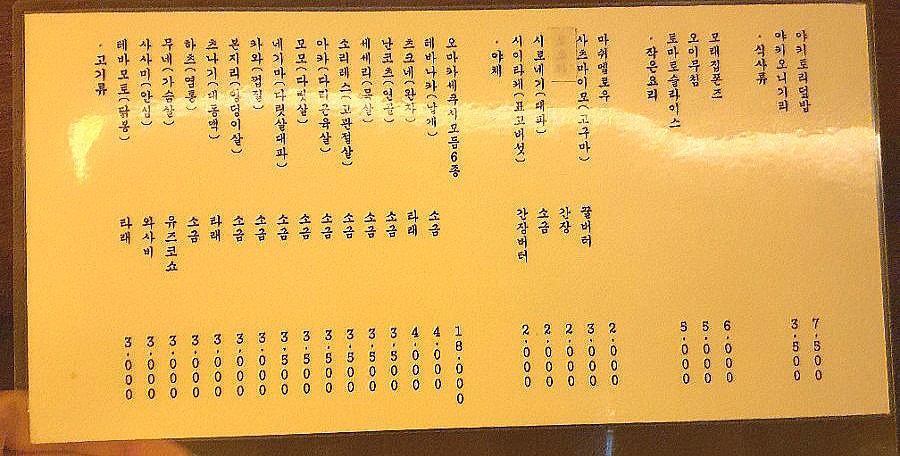 · 고기류
테바모토(닭봉) 타래 3.000
사사미(안심) 와사비 3.000
무네(가슴살) 유즈코쇼 3.000
하츠(염통) 소금 3.000
츠나기(대동맥) 타래 3.000
본지리(엉덩이살) 소금 3.000
카와(껍질) 소금 3.000
네기마(다릿살대파) 소금 3.500
모모(다릿살) 소금 3.500
아카(다리근육살) 소금 3.500
소리레스(고관절살) 소금 3.500
세세리(목살) 소금 3.500
난코츠(연골) 소금 3.500
츠크네(완자) 타래 4.000
테바나카(날개) 소금 4.000
오마카세쿠시모듬6종 18.000
· 야채
시이타케(표고버섯) 간장버터 2.000
시로네기(대파) 소금 2.000
간장 2.000
사츠마이모(고구마) 꿀버터 3.000
마쉬멜로우 2.000
· 작은요리
토마토슬라이스 5.000
오이무침 5.000
모래집폰즈 6.000
· 식사류
야키오니기리 3.500
야키토리덮밥 7.500